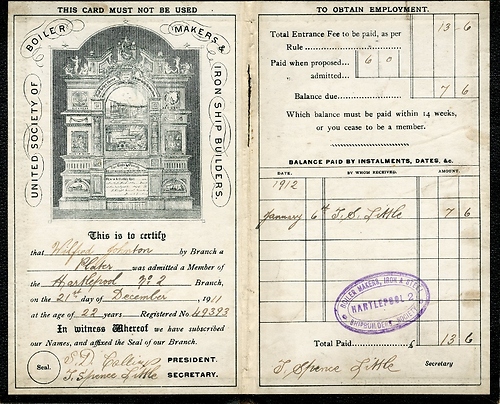 THIS CARD MUST NOT BE USED
UNITED SOCIETY OF BOILER MAKERS & IRON SHIP BUILDERS.
This is to certify
that Wilfred Johnton by Branch a
Plater was admitted a Member of
the Hartlepool No 2 Branch,
on the 21st day of December 1911
at the age of 22 years Registered No. 49393
In witness Whereof we have subscribed
our Names, and affixed the Seal of our Branch.
Seal.
PRESIDENT.
T. Spence Little SECRETARY.
TO OBTAIN EMPLOYMENT.
Total Entrance Fee to be paid, as per
Rule 13 6
Paid when proposed 6 0
admitted
Balance due 7 6
Which balance must be paid within 14 weeks,
or you cease to be a member.
BALANCE PAID BY INSTALMENTS, DATES, &c.
DATE. BY WHOM RECEIVED. AMOUNT.
1912
January 6th T. S. Little 7 6
BOILER MAKERS, IRON & STEEL
HARTLEPOOL 2
SHIPBUILDERS SOCIETY
Total Paid £ 13 6
T. Spence Little Secretary